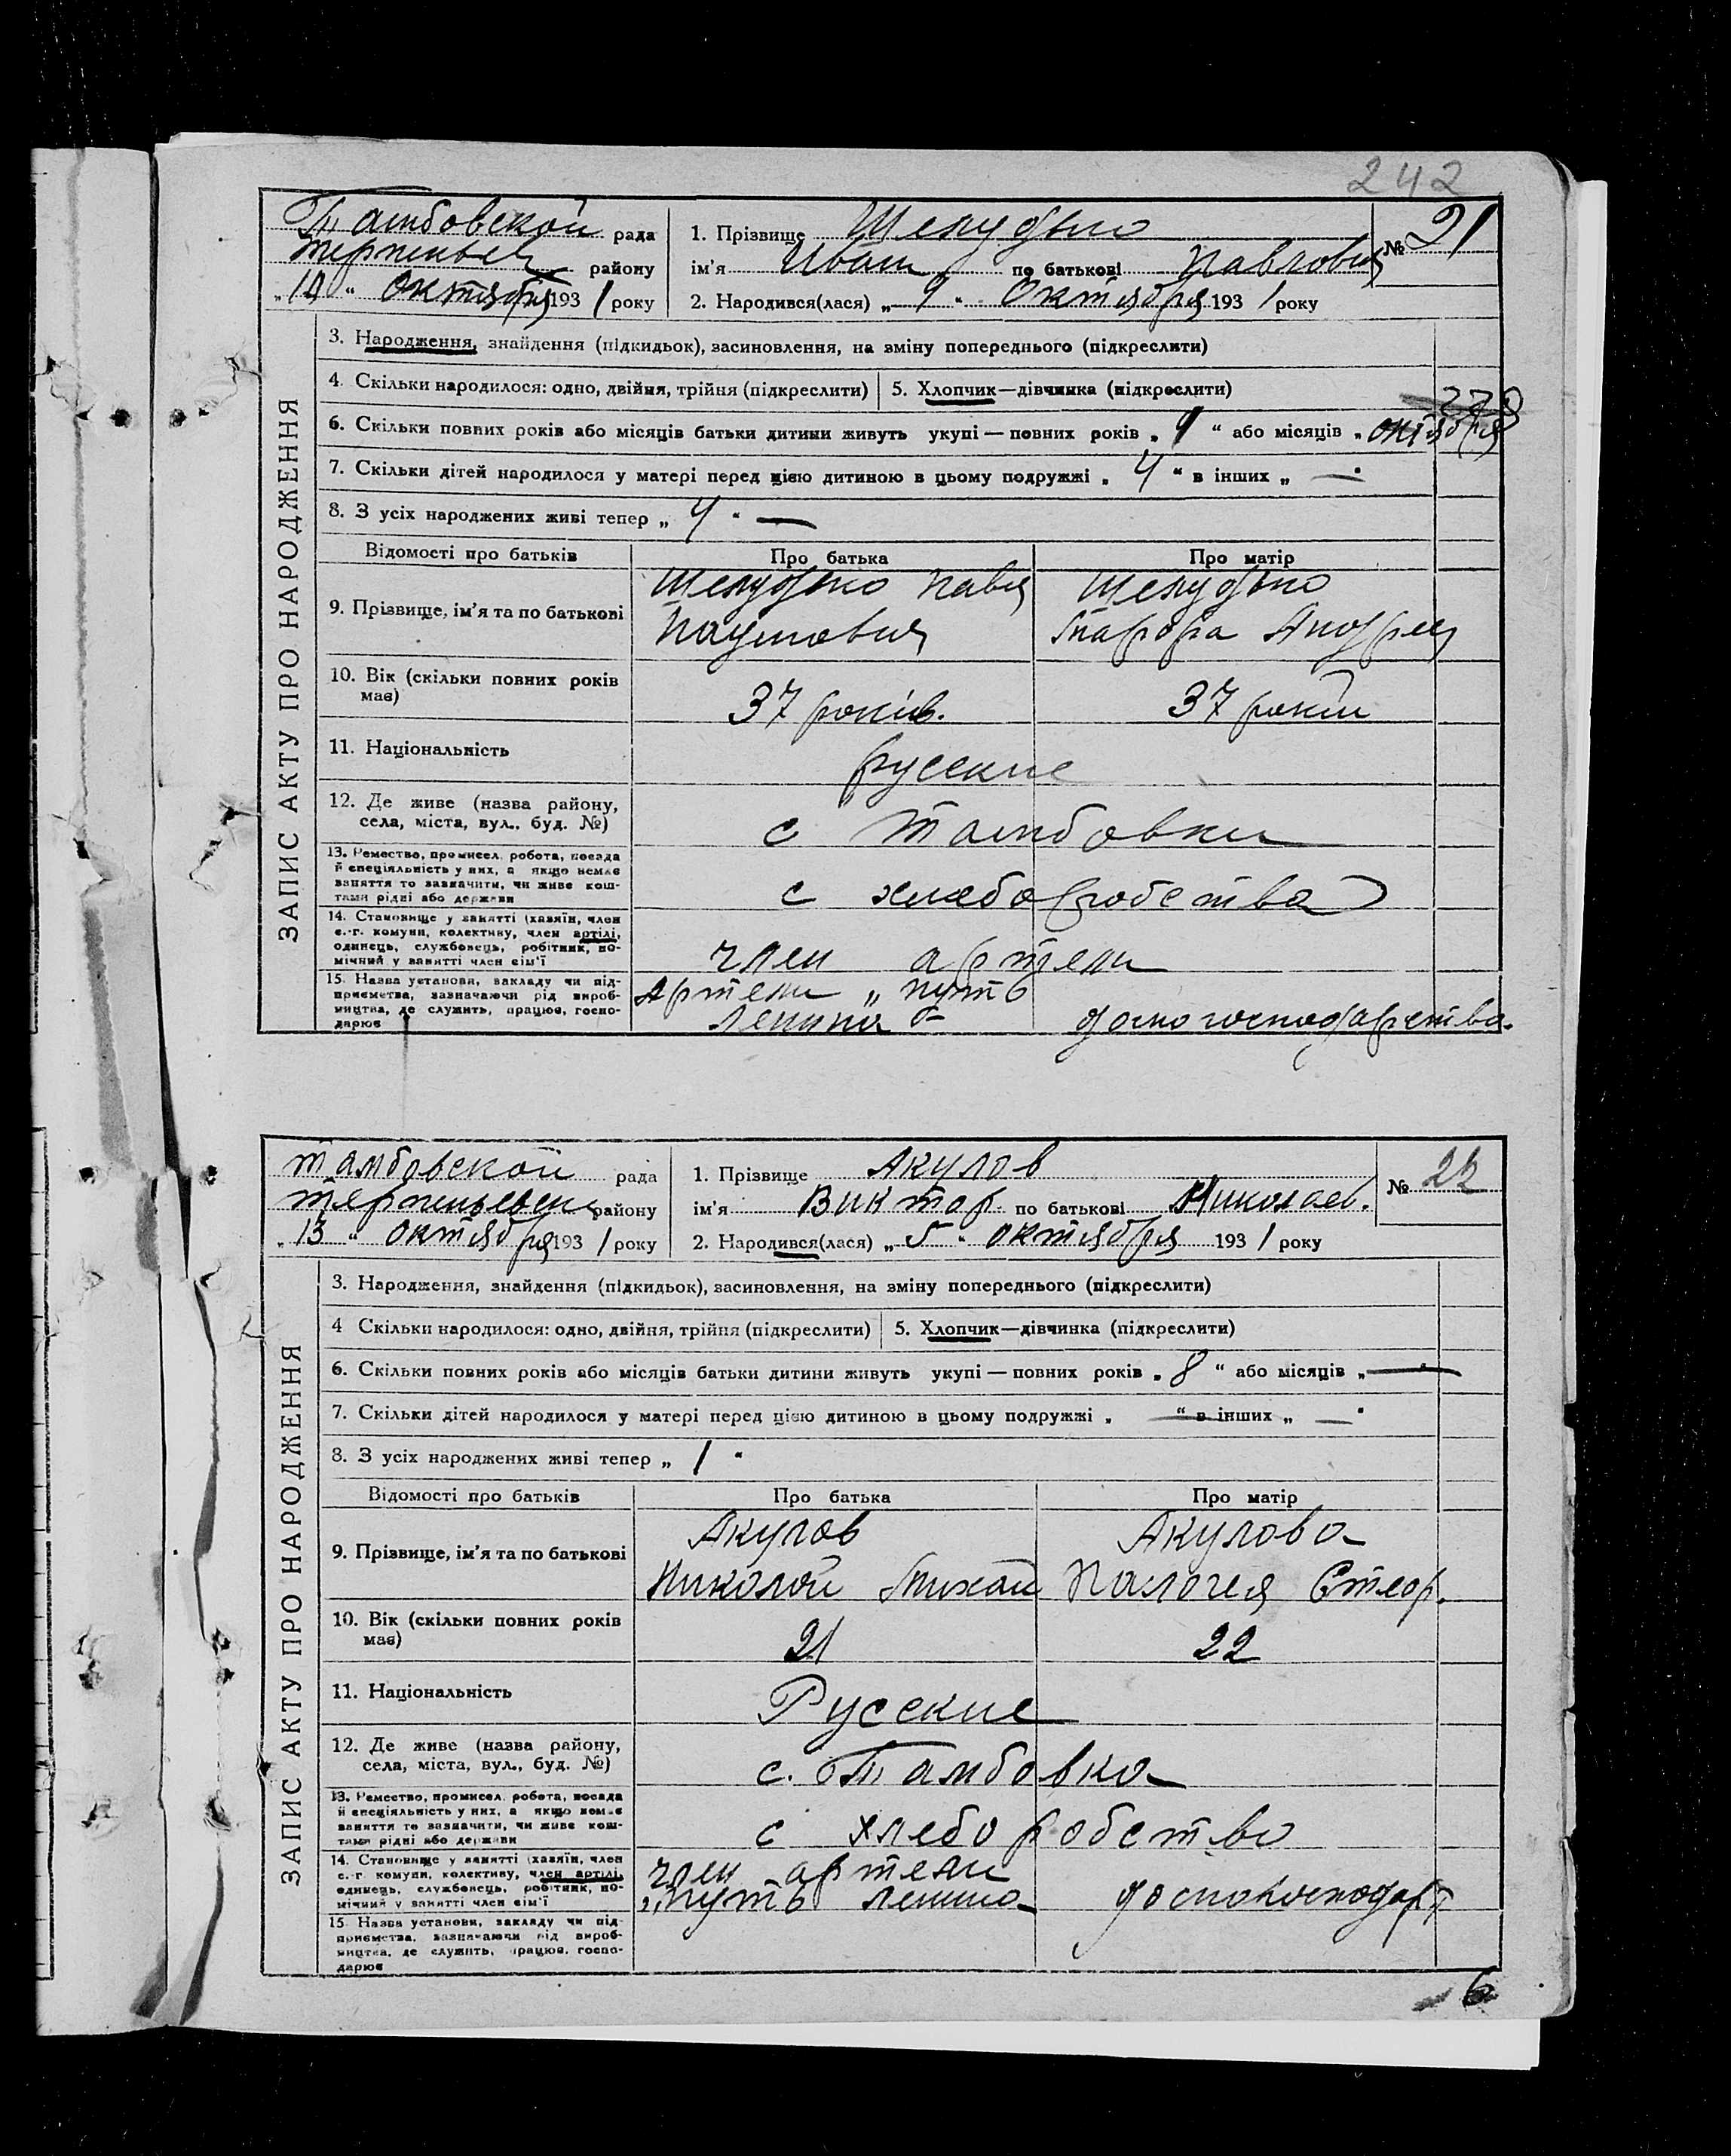 242
Тамбовской рада
района
1. Прізвище Шелудько
№ 21
Терпеньев району
ім'я Иван по батькові Павлович
"10" Октября 1931 року
2. Народився(лася) „9" Октября 1931 року
ЗАПИС АКТУ ПРО НАРОДЖЕННЯ
3. Народження, знайдення (підкидьок), засиновлення, на зміну попереднього (підкреслити)
4. Скільки народилося: одно, двійня, трійня (підкреслити) 5. Хлопчик—дівчинка (підкреслити)
6. Скільки повних років або місяців батьки дитини живуть укупі — повних років „9" або місяців „ октября
7. Скільки дітей народилося у матері перед цією дитиною в цьому подружжі „ 4 " в інших „ — "
8. З усіх народжених живі тепер „ 4 " —
Відомості про батьків Про батька Про матір
9. Прізвище, ім'я та по батькові
Шелудько Павел Шелудько
Наумович Андрее
10. Вік (скільки повних років має) 37 років. 37 років
11. Національність русские
12. Де живе (назва району, села, міста, вул., буд. №) с Тамбовки
13. Ремество, промисел, робота, посада й спеціяльність у них, а якщо немає заняття то зазначити, чи живе коштами рідні або держави с хлеборобства
14. Становище у занятті (хазяїн, член с.-г. комуни, колективу, член артілі, одинець, службовець, робітник, помічний у занятті член сім'ї член артели
15. Назва установи, закладу чи підприємства, зазначаючи рід виробництва, де служить, працює, господарює
Артели „путь
Ленина" домогосподарства.
тамбовской рада
1. Прізвище Акулов
№ 22
терпеньевск району
ім'я Виктор. по батькові Николаев.
"13" октября 1931 року
2. Народився(лася) „5" октября 1931 року
ЗАПИС АКТУ ПРО НАРОДЖЕННЯ
3. Народження, знайдення (підкидьок), засиновлення, на зміну попереднього (підкреслити)
4 Скільки народилося: одно, двійня, трійня (підкреслити) 5. Хлопчик—дівчинка (підкреслити)
6. Скільки повних років або місяців батьки дитини живуть укупі — повних років „8" або місяців „ — "
7. Скільки дітей народилося у матері перед цією дитиною в цьому подружжі „ — " в інших „ — "
8. З усіх народжених живі тепер „ 1 "
Відомості про батьків Про батька Про матір
9. Прізвище, ім'я та по батькові
Акулов Акулова
Николай Михай Палогея
10. Вік (скільки повних років має) 21 22
11. Національність Русские
12. Де живе (назва району, села, міста, вул., буд. №) с. Тамбовка
13. Ремество, промисел, робота, посада й спеціяльність у них, а якщо немає заняття то зазначити, чи живе коштами рідні або держави с хлеборобство
14. Становище у занятті (хазяїн, член с.-г. комуни, колективу, член артілі, одинець, службовець, робітник, помічний у занятті член сім'ї
член артели
„путь ленина
15 Назва установи, закладу чи підприємства, зазначаючи рід виробництва, де служить, працює, господарює
6